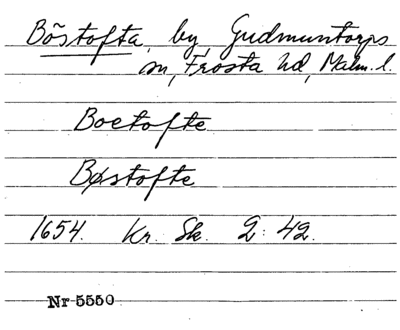 Böstofta, by Gudmuntorps
sn, Frosta hd, Malm. l.
Boetofte
Bøstofte
1654. Kr. Sk. 2: 42.
Nr 5550